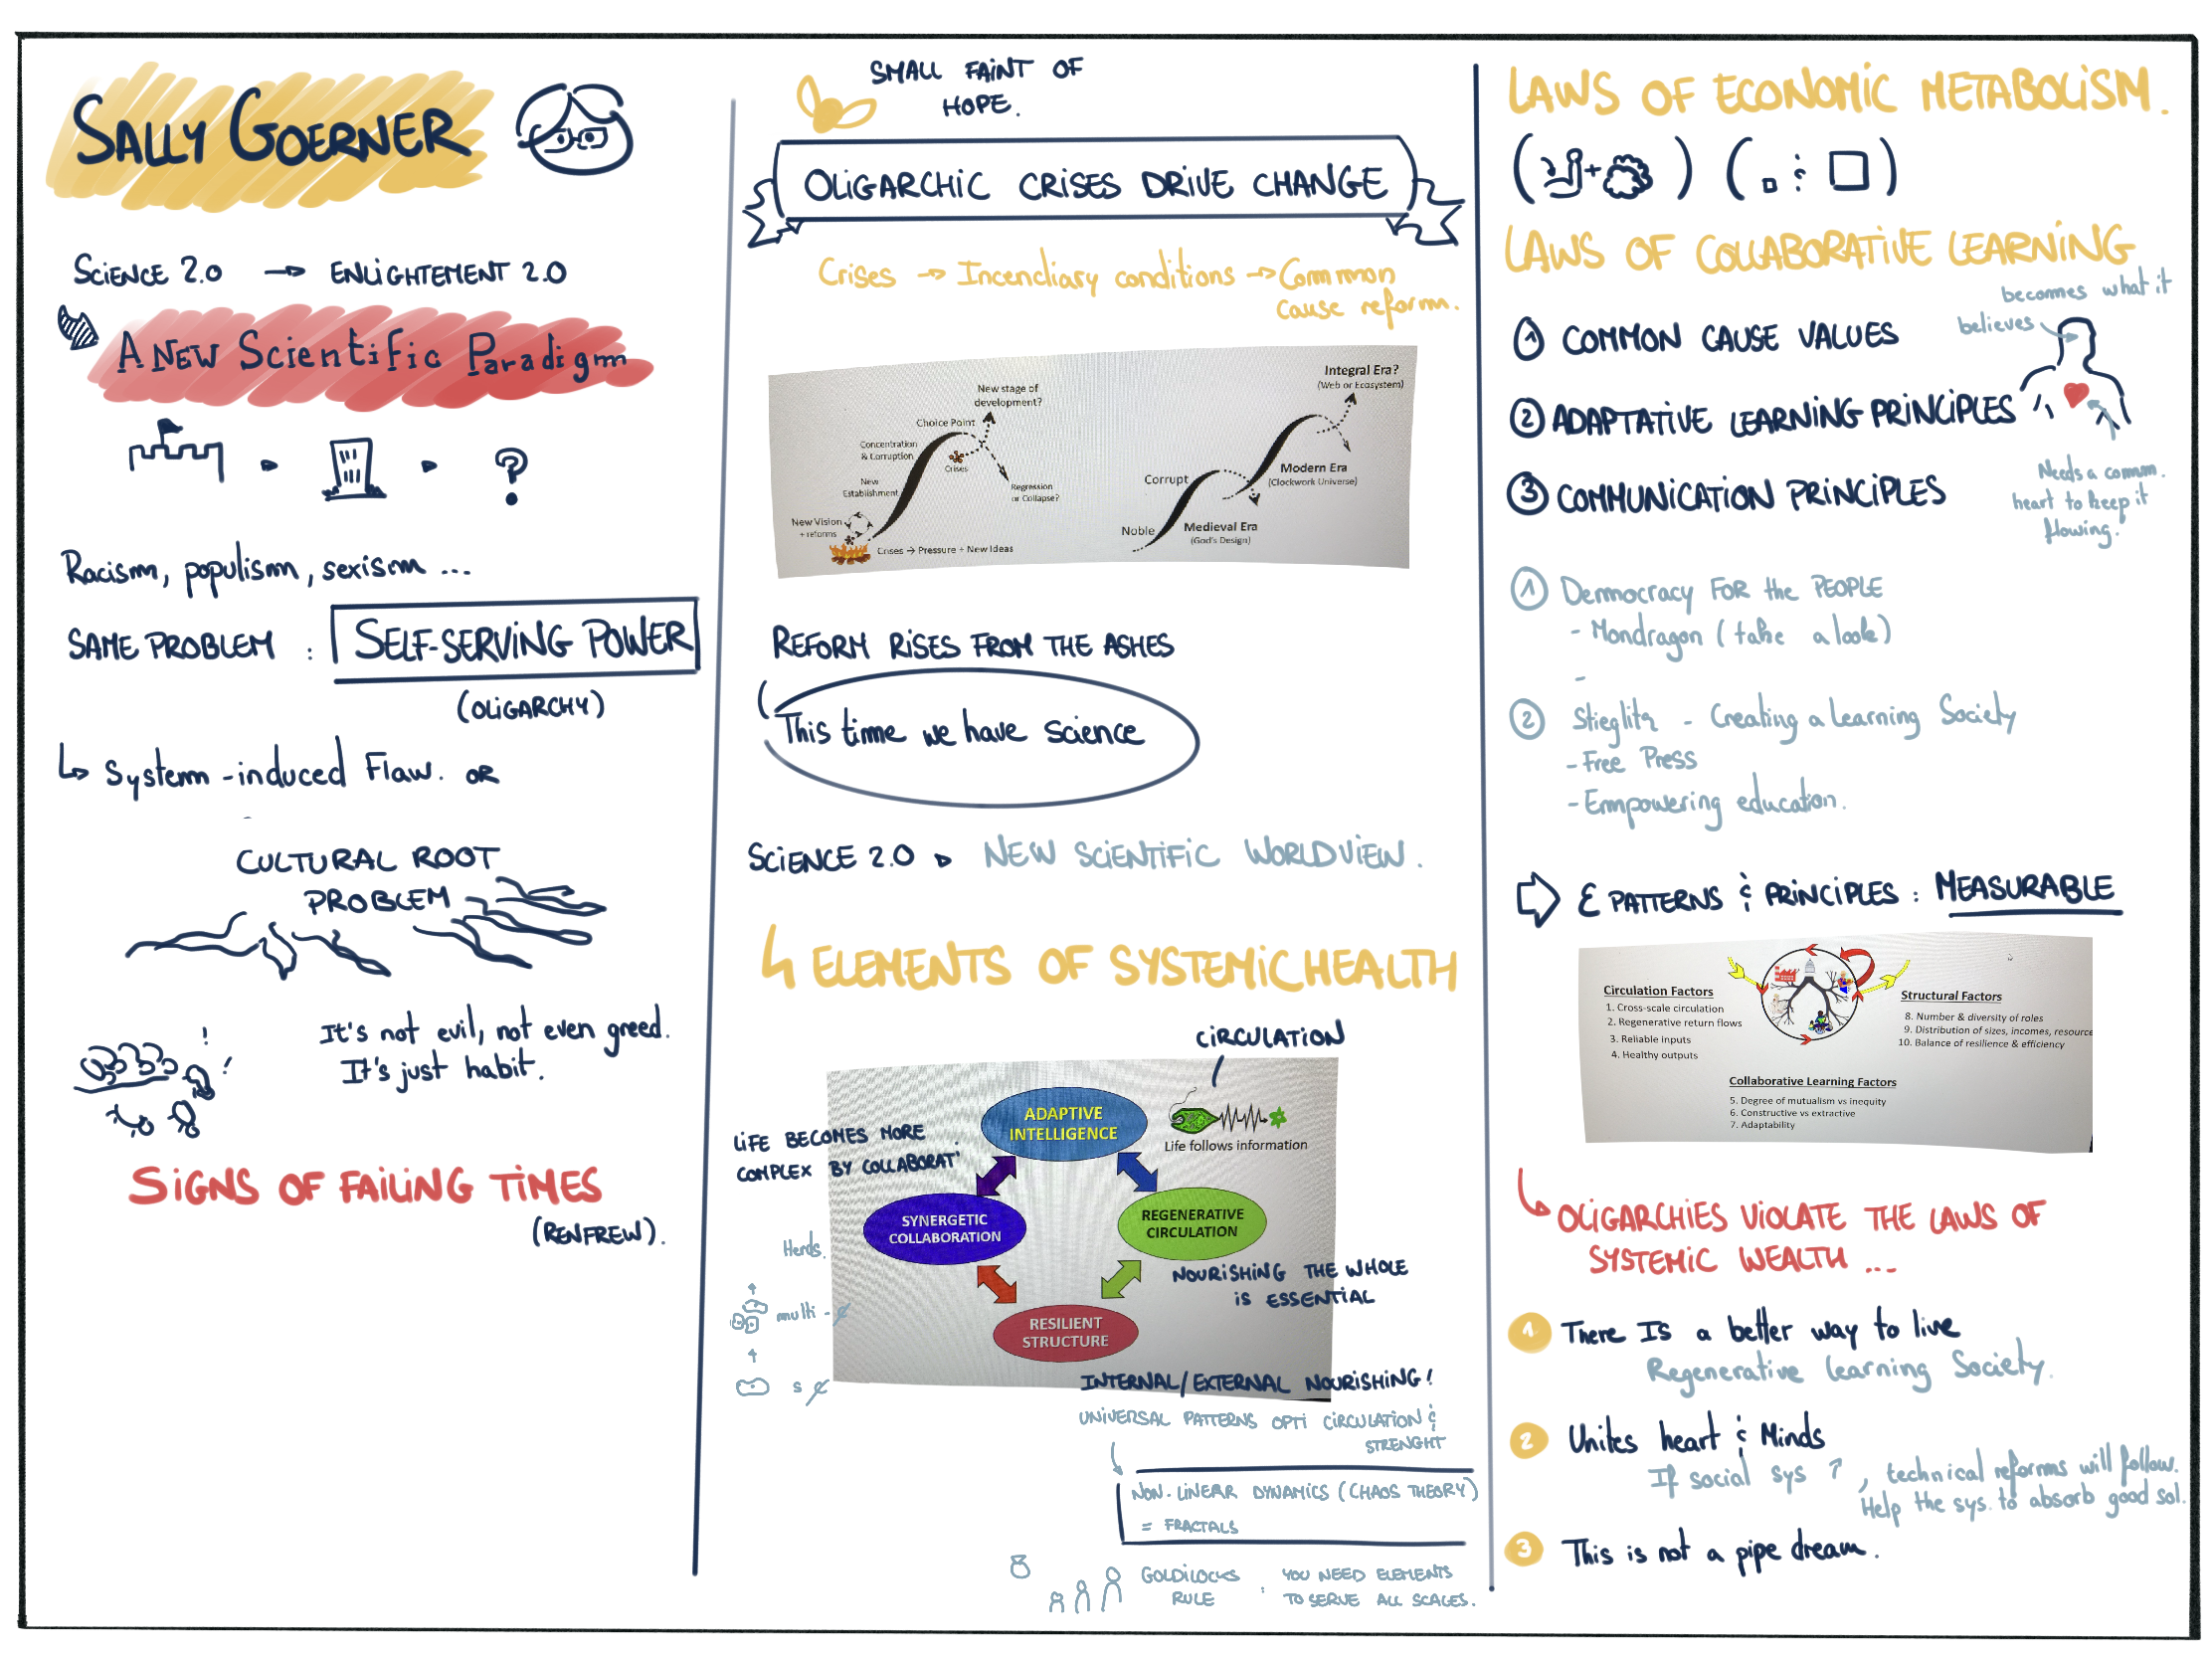 SALLY GOERNER
SCIENCE 2.0 → ENLIGHTEMENT 2.0
A NEW Scientific Paradigm
?
Racism, populism, sexism ...
SAME PROBLEM : SELF-SERVING POWER
(OLIGARCHY)
System-induced Flaw. OR
CULTURAL ROOT
PROBLEM
It's not evil, not even greed.
It's just habit.
! !
SIGNS OF FAILING TIMES
(RENFREW).
SMALL FAINT OF
HOPE.
OLIGARCHIC CRISES DRIVE CHANGE
Crises → Incendiary conditions → Common
cause reform.
New stage of
development?
Choice Point
Concentration
& Corruption
Crises
New
Establishment
Regression
or Collapse?
New Vision
+ reforms
Crises → Pressure + New Ideas
Integral Era?
(Web or Ecosystem)
Modern Era
(Clockwork Universe)
Corrupt
Noble
Medieval Era
(God's Design)
REFORM RISES FROM THE ASHES
This time we have science
SCIENCE 2.0 ▸ NEW SCIENTIFIC WORLDVIEW.
4 ELEMENTS OF SYSTEMIC HEALTH
CIRCULATION
ADAPTIVE
INTELLIGENCE
Life follows information
LIFE BECOMES MORE
COMPLEX BY COLLABORAT'
SYNERGETIC
COLLABORATION
REGENERATIVE
CIRCULATION
Herds.
NOURISHING THE WHOLE
IS ESSENTIAL
multi - ¢
RESILIENT
STRUCTURE
s ¢
INTERNAL/EXTERNAL NOURISHING!
UNIVERSAL PATTERNS OPTI CIRCULATION &
STRENGHT
NON-LINEAR DYNAMICS (CHAOS THEORY)
= FRACTALS
GOLDILOCKS
RULE : YOU NEED ELEMENTS
TO SERVE ALL SCALES.
LAWS OF ECONOMIC METABOLISM.
LAWS OF COLLABORATIVE LEARNING
becomes what it
believes
① COMMON CAUSE VALUES
② ADAPTATIVE LEARNING PRINCIPLES
③ COMMUNICATION PRINCIPLES
Needs a comm.
heart to keep it
flowing.
① Democracy FOR the PEOPLE
- Mondragon (take a look)
-
② Stieglitz - Creating a learning Society
- Free Press
- Empowering education.
⇨ & PATTERNS & PRINCIPLES : MEASURABLE
Circulation Factors
1. Cross-scale circulation
2. Regenerative return flows
3. Reliable inputs
4. Healthy outputs
Structural Factors
8. Number & diversity of roles
9. Distribution of sizes, incomes, resource
10. Balance of resilience & efficiency
Collaborative Learning Factors
5. Degree of mutualism vs inequity
6. Constructive vs extractive
7. Adaptability
OLIGARCHIES VIOLATE THE LAWS OF
SYSTEMIC WEALTH ...
1 There Is a better way to live
Regenerative learning Society.
2 Unites heart & Minds
If social sys ↑, technical reforms will follow.
Help the sys. to absorb good sol.
3 This is not a pipe dream.